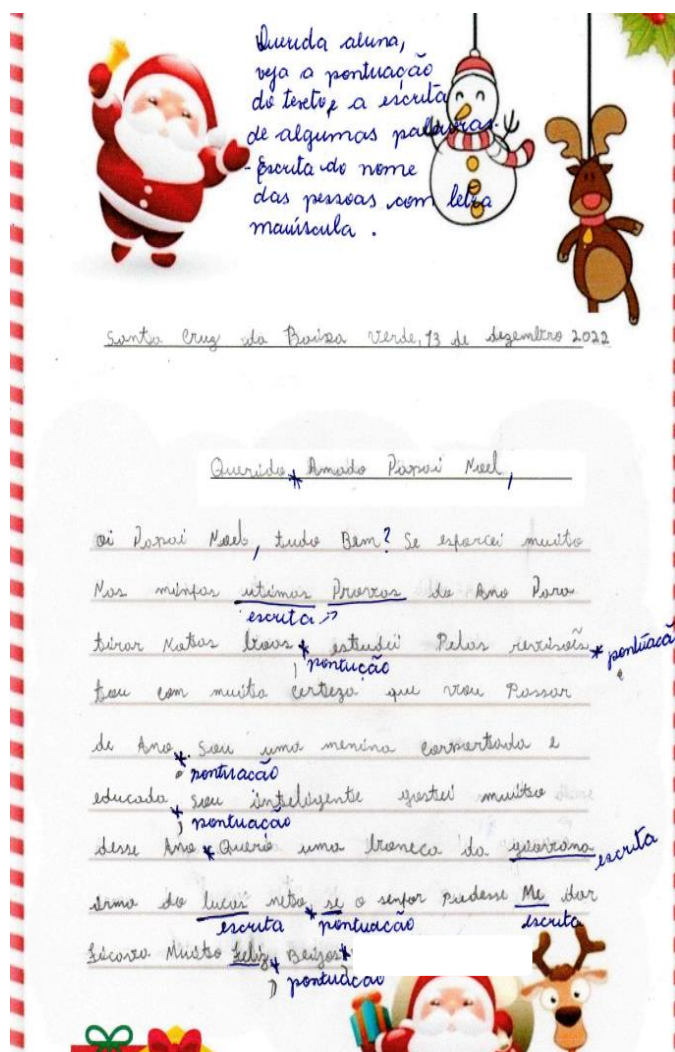 Querida aluna,
veja a pontuação
do texto, e a escrita
de algumas palavras.
- Escrita do nome
das pessoas com letra
maiúscula.
Santa Cruz da Baixa verde, 13 de dezembro 2022
Querido * Amado Papai Noel,
oi Papai Noel, tudo Bem? Se esforcei muito
Nas minhas utimas Provas do Ano Para
escrita
tirar Notas boas * estudei Pelas revisois * pontuacã
, pontução
tou com muita certeza que vou Passar
de Ano *. Sou uma menina comportada e
. pontuacão
educada * sou inteligente gostei muitoo
, pontuacão
desse Ano * Queria uma boneca da escrita
irma do lucas neto * se o senhor Pudesse Me dar
escrita pontuacão escrita
ficava Muito feliz * Beijos *
, pontuacão